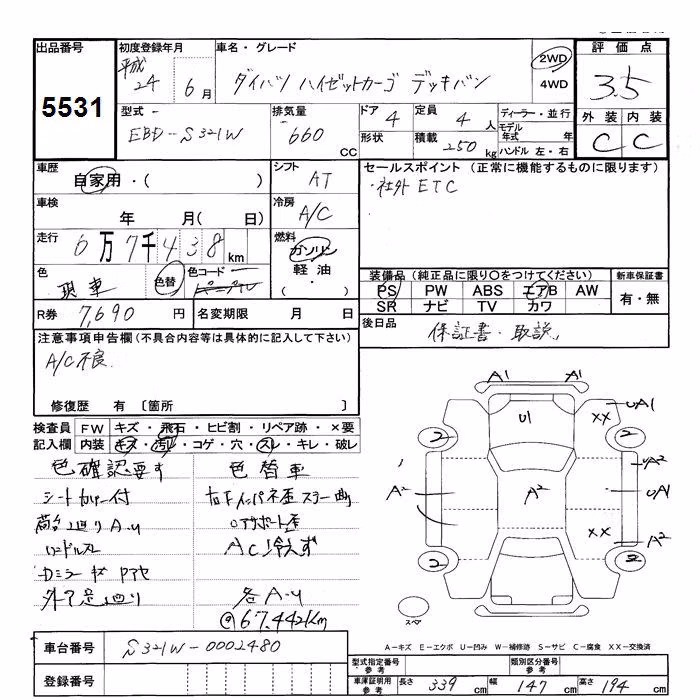 出品番号 初度登録年月 車名・グレード 評価点
5531 平成 24 6月 ダイハツ ハイゼットカーゴ デッキバン 2WD 4WD 3.5
型式 排気量 ドア 定員 ディーラー・並行 外装 内装
EBD-S321W 660 CC 4 形状 4人 積載 250kg モデル年式 年 ハンドル 左・右 C C
車歴 シフト セールスポイント(正常に機能するものに限ります)
自家用・( ) AT 社外ETC
車検 冷房
年 月( 日) A/C
走行 燃料
6万7千438km ガソリン
色 色替 色コード 軽油 装備品(純正品に限り○をつけてください) 新車保証書
現車 ・ PS PW ABS エアB AW 有・無
SR ナビ TV カワ
R券 7,690円 名変期限 月 日 後日品
保証書・取説
注意事項申告欄(不具合内容等は具体的に記入して下さい)
A/C不良
修復歴 有 〔箇所
検査員 FW キズ・飛石・ヒビ割・リペア跡・×要
記入欄 内装 キズ・汚れ・コゲ・穴・スレ・キレ・破レ
色確認要す 色替車
シートカバー付
AC冷えず
外下足廻り 各A.U
@67,442km
A1 A1
U1 XX UA1
2 2
A2 A2 UA2
UA1
XX A2
2 2
スペア
A-キズ E-エクボ U-凹み W-補修跡 S-サビ C-腐食 XX-交換済
車台番号 S321W-0002480
登録番号
型式指定番号 参考 類別区分番号 参考
車庫証明用 参考 長さ 339cm 幅 147cm 高さ 194cm